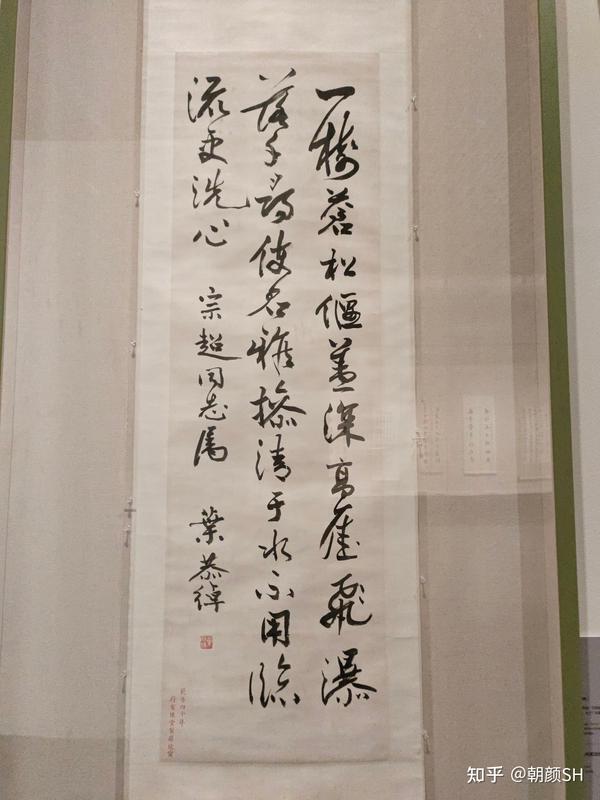 一樹蒼松偃蓋深高崖飛瀑
落千尋使君雅操清于水不用臨
流更洗心 宗超同志属 葉恭綽
知乎 @朝颜SH